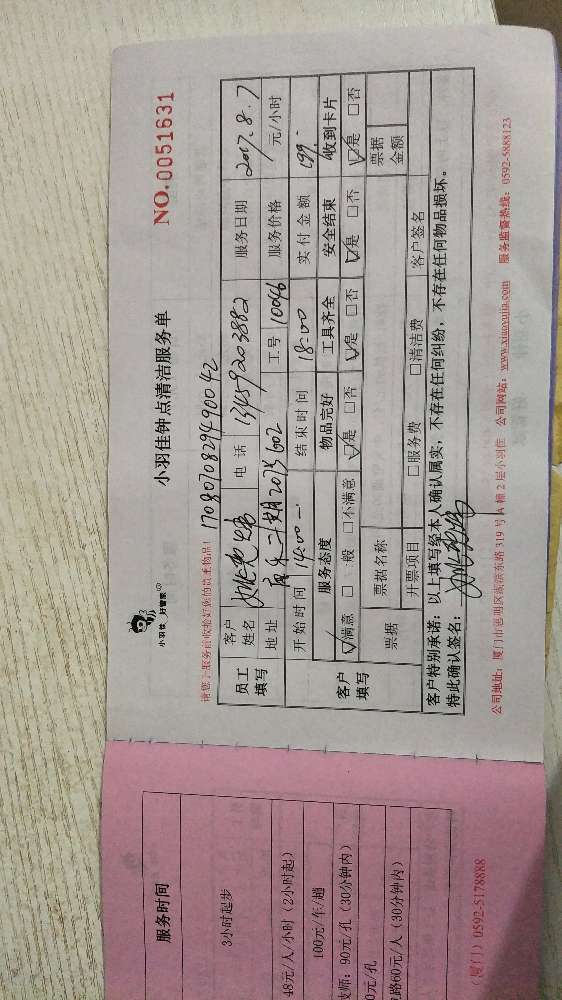 小羽佳 好管家
小羽佳钟点清洁服务单
NO.0051631
请您于服务前收捡好您的贵重物品！
170807082949 0042
员工填写 客户姓名 电话 13459203882 服务日期 2017.8.7
地址 二期 602 工号 10046 服务价格 元/小时
客户填写 开始时间 14:00 结束时间 18:00 实付金额 199
服务态度 物品完好 工具齐全 安全结束 收到卡片
☑满意 □一般 □不满意 ☑是 □否 ☑是 □否 ☑是 □否 ☑是 □否
票据 票据名称 票据金额
开票项目 □服务费 □清洁费 客户签名
客户特别承诺：以上填写经本人确认属实，不存在任何纠纷，不存在任何物品损坏。
特此确认签名：
公司地址：厦门市思明区莲洪东路319号A幢2层小羽佳 公司网站：www.xiaoyujia.com 服务监督热线：0592-5888123
服务时间
3小时起步
48元/人/小时（2小时起）
100元/车/趟
技师：90元/孔（30分钟内）
0元/孔
路60元/人（30分钟内）
（厦门）0592-5178888